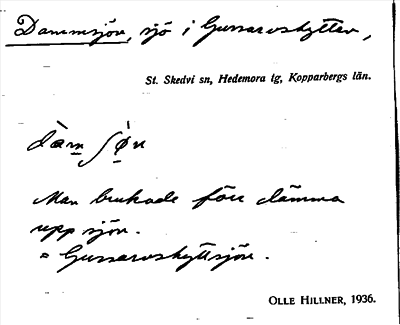 Dammsjön, sjö i Gussarvshyttan,
St. Skedvi sn, Hedemora tg, Kopparbergs län.
dàm ʃø̀n
Man brukade förr dämma
upp sjön.
= Gussarvshyttsjön.
OLLE HILLNER, 1936.